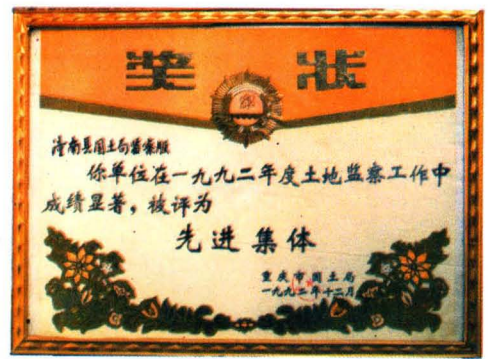 奖状
潼南县国土局监察股
你单位在一九九二年度土地监察工作中
成绩显著，被评为
先进集体
重庆市国土局
一九九二年十二月